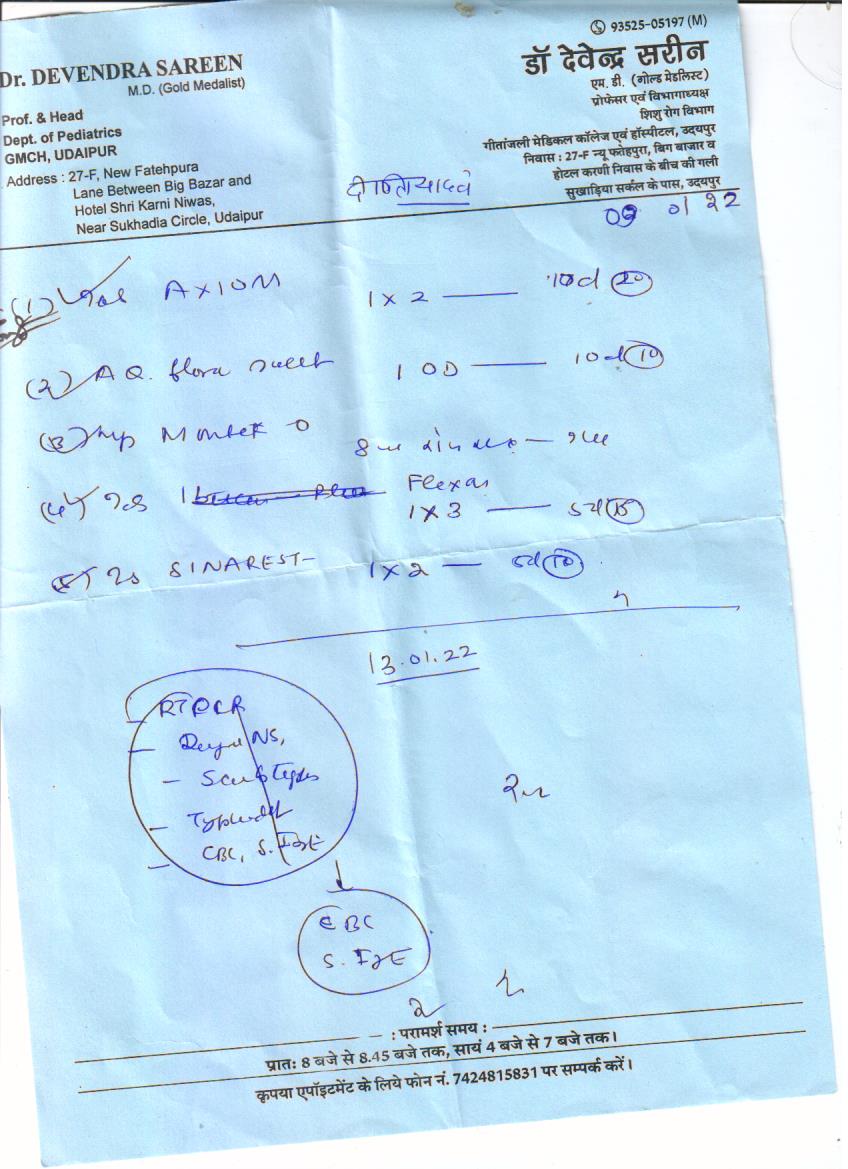 93525-05197 (M)
Dr. DEVENDRA SAREEN
M.D. (Gold Medalist)
Prof. & Head
Dept. of Pediatrics
GMCH, UDAIPUR
Address : 27-F, New Fatehpura
Lane Between Big Bazar and
Hotel Shri Karni Niwas,
Near Sukhadia Circle, Udaipur
डॉ देवेन्द्र सरीन
एम. डी. (गोल्ड मेडलिस्ट)
प्रोफेसर एवं विभागाध्यक्ष
शिशु रोग विभाग
गीतांजली मेडिकल कॉलेज एवं हॉस्पीटल, उदयपुर
निवास : 27-F न्यू फतेहपुरा, बिग बाजार व
होटल करणी निवास के बीच की गली
सुखाड़िया सर्कल के पास, उदयपुर
01 22
(1) AXIOM 1 x 2 — 10d 20
(2) AQ. flora 1 OD — 10d 10
(3) O
(4) Flexar
1 x 3 — 5d 15
(5) SINAREST- 1 x 2 — 5d 10
13.01.22
RTPCR
NS,
- Scrub Typhus
CBC, S.
CBC
S.
- : परामर्श समय : -
प्रातः 8 बजे से 8.45 बजे तक, सायं 4 बजे से 7 बजे तक।
कृपया एपॉइटमेंट के लिये फोन नं. 7424815831 पर सम्पर्क करें।